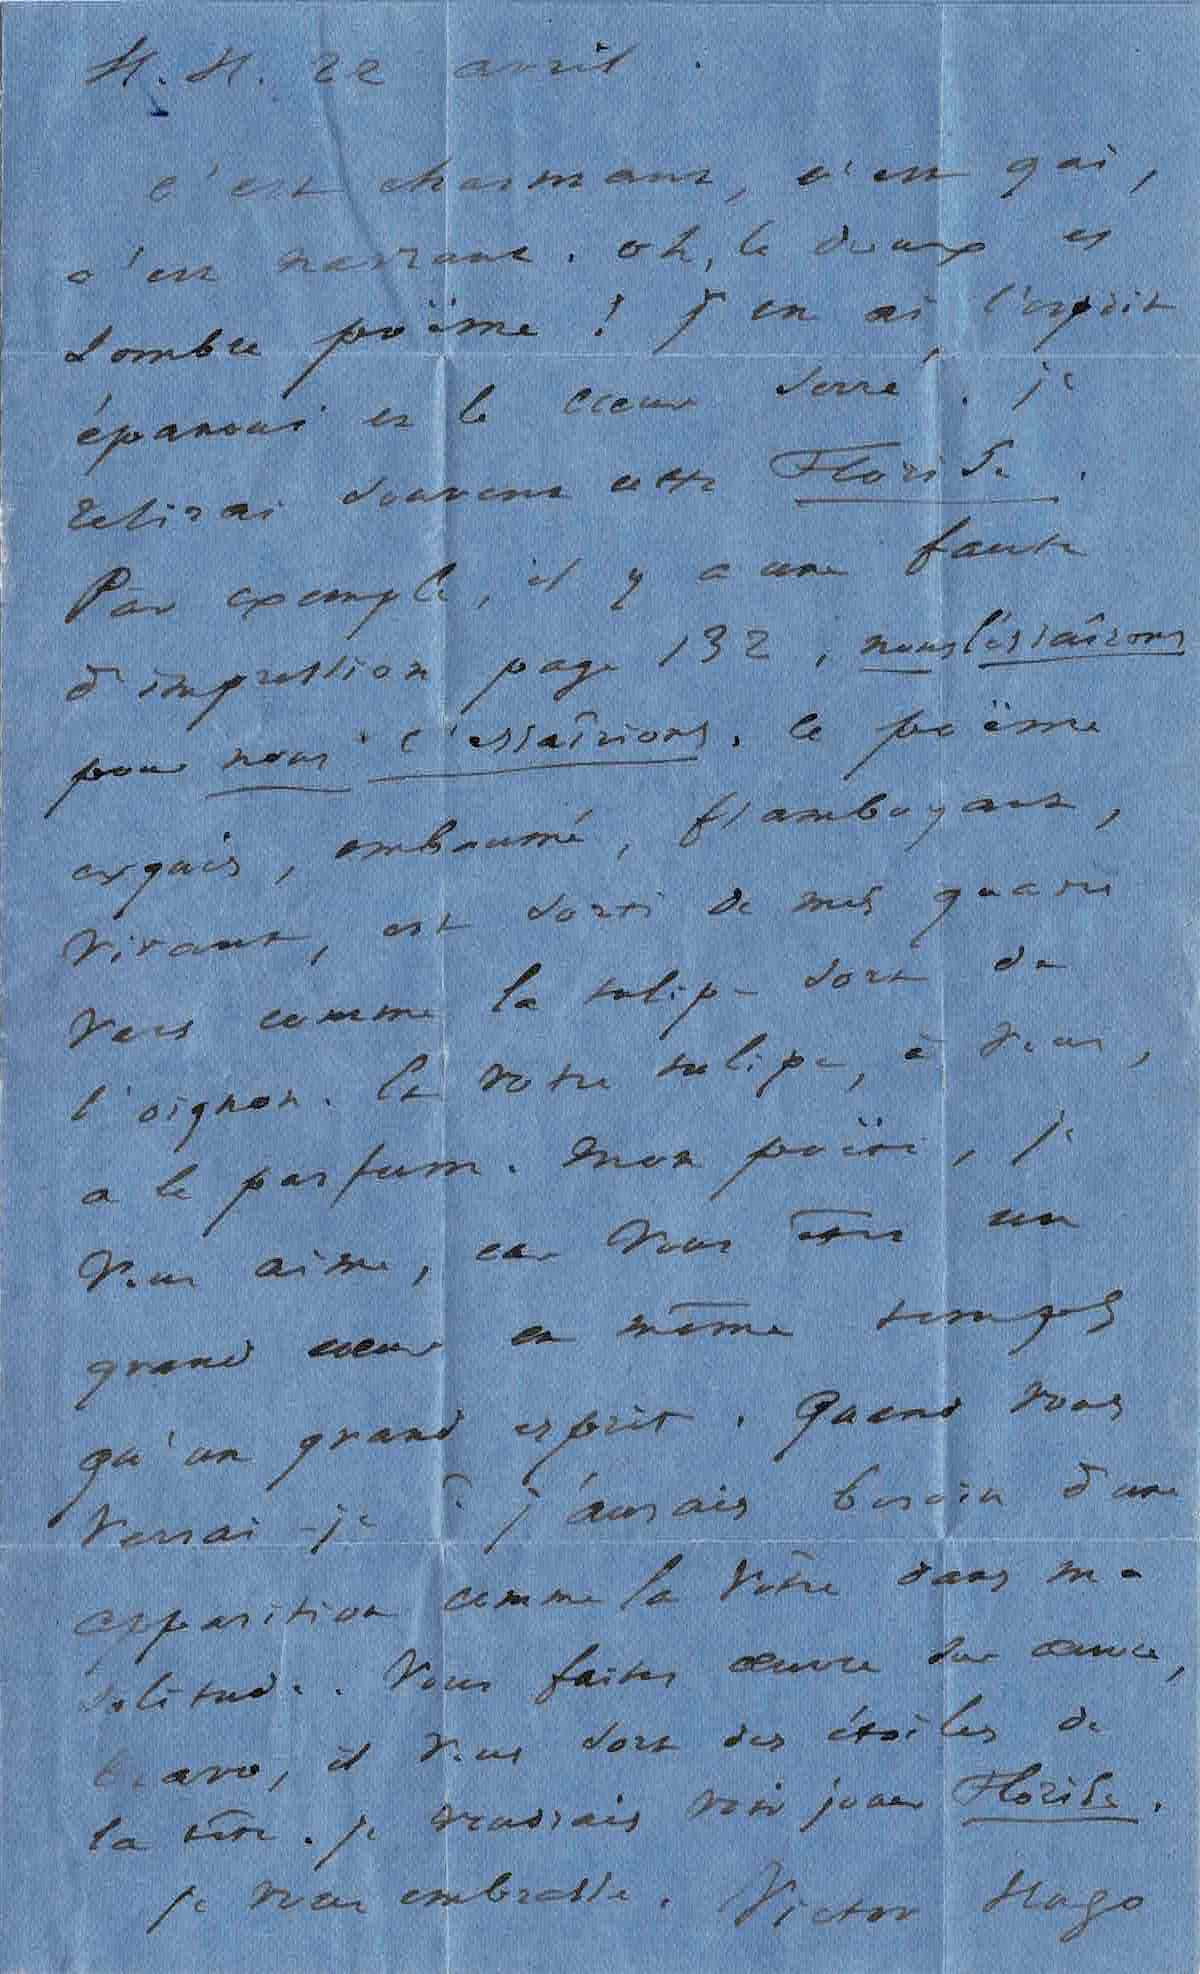 H. H. 22 avril.
c'est charmant, c'est gai,
c'est navrant. oh, le doux et
sombre poëme ! j'en ai l'esprit
épanoui et le cœur serré. je
relirai souvent cette Florise.
Par exemple, il y a une faute
d'impression page 132, nous l'essaîrons
pour nous l'essaîrions. le poëme
exquis, embaumé, flamboyant,
vivant, est sorti de mes quatre
vers comme la tulipe sort de
l'oignon. Et votre tulipe, à vous,
a le parfum. Mon poëte, je
vous aime, car vous êtes un
grand cœur en même temps
qu'un grand esprit. Quand vous
verrai-je ? j'aurais besoin d'une
apparition comme la vôtre dans ma
solitude. Vous faites œuvre sur œuvre,
bravo, il vous sort des étoiles de
la tête. je voudrais voir jouer Florise.
je vous embrasse. Victor Hugo